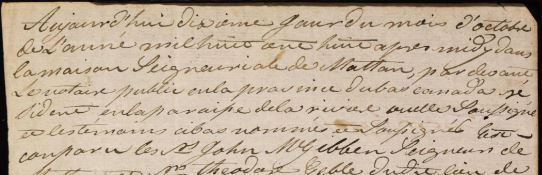 Aujourd'hui dixieme jour du mois d'octobre
de l'anné mil huit cent huit apres midy dans
la maison Seigneuriale de Mattan, par devant
le notaire public en la province du bas canada ré
sident en la paroisse de la riviere ouelle Soussigné
et les témoins a bas nommés et Soussignés Est
comparu les Srs John McGibbon Seigneurs de
theodore dudit lieu de